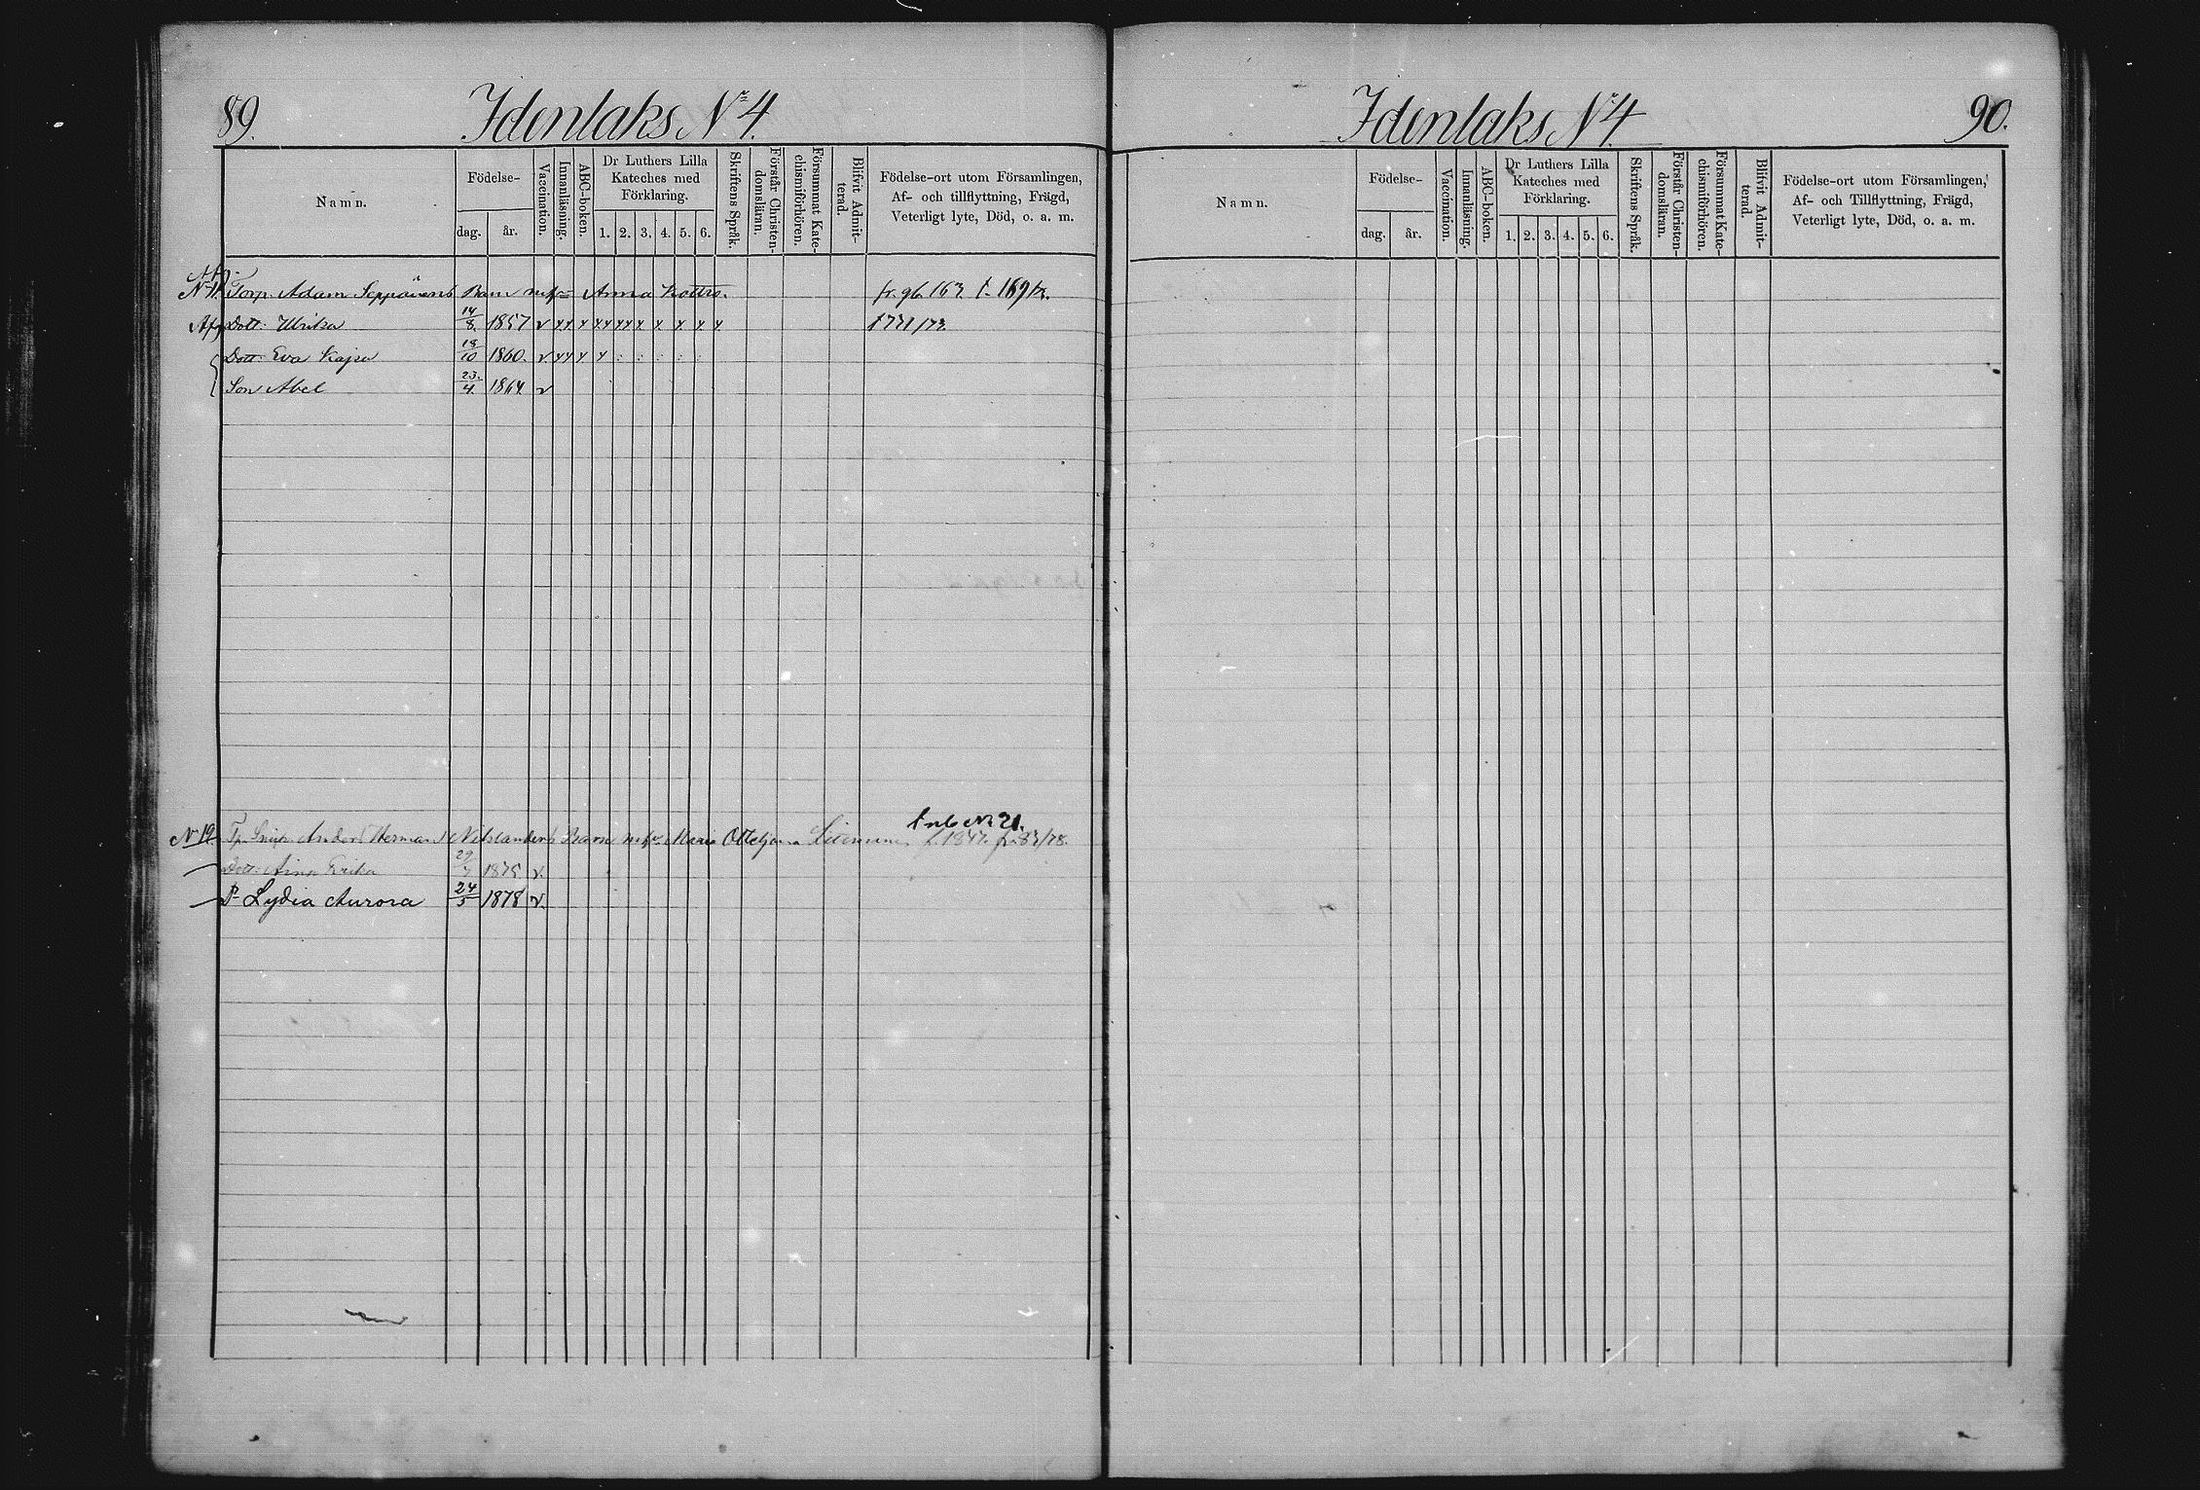 89. Idenlaks N:4.
Namn.
Födelse-
dag. år.
Vaccination.
Innanläsning.
ABC-boken.
Dr Luthers Lilla
Kateches med
Förklaring.
1. 2. 3. 4. 5. 6.
Skriftens Språk.
Förstår Christen-
domsläran.
Försummat Kate-
chismiförhören.
Blifvit Admit-
terad.
Födelse-ort utom Församlingen,
Af- och tillflyttning, Frägd,
Veterligt lyte, Död, o. a. m.
Torp. Adam Seppänens Barn Anna
Dott: Ulrika 14/8. 1857 v
Dott: Eva Kajsa 18/10 1860. v
Son Abel 23./4. 1864 v
N 12 Anders Herman Barn Maria f. 1847.
Dott: Erika 1875 v.
D- Lydia Aurora 24/5 1878 v.
Idenlaks N:4 90.
Namn.
Födelse-
dag. år.
Vaccination.
Innanläsning.
ABC-boken.
Dr Luthers Lilla
Kateches med
Förklaring.
1. 2. 3. 4. 5. 6.
Skriftens Språk.
Förstår Christen-
domsläran.
Försummat Kate-
chismiförhören.
Blifvit Admit-
terad.
Födelse-ort utom Församlingen,
Af- och Tillflyttning, Frägd,
Veterligt lyte, Död, o. a. m.